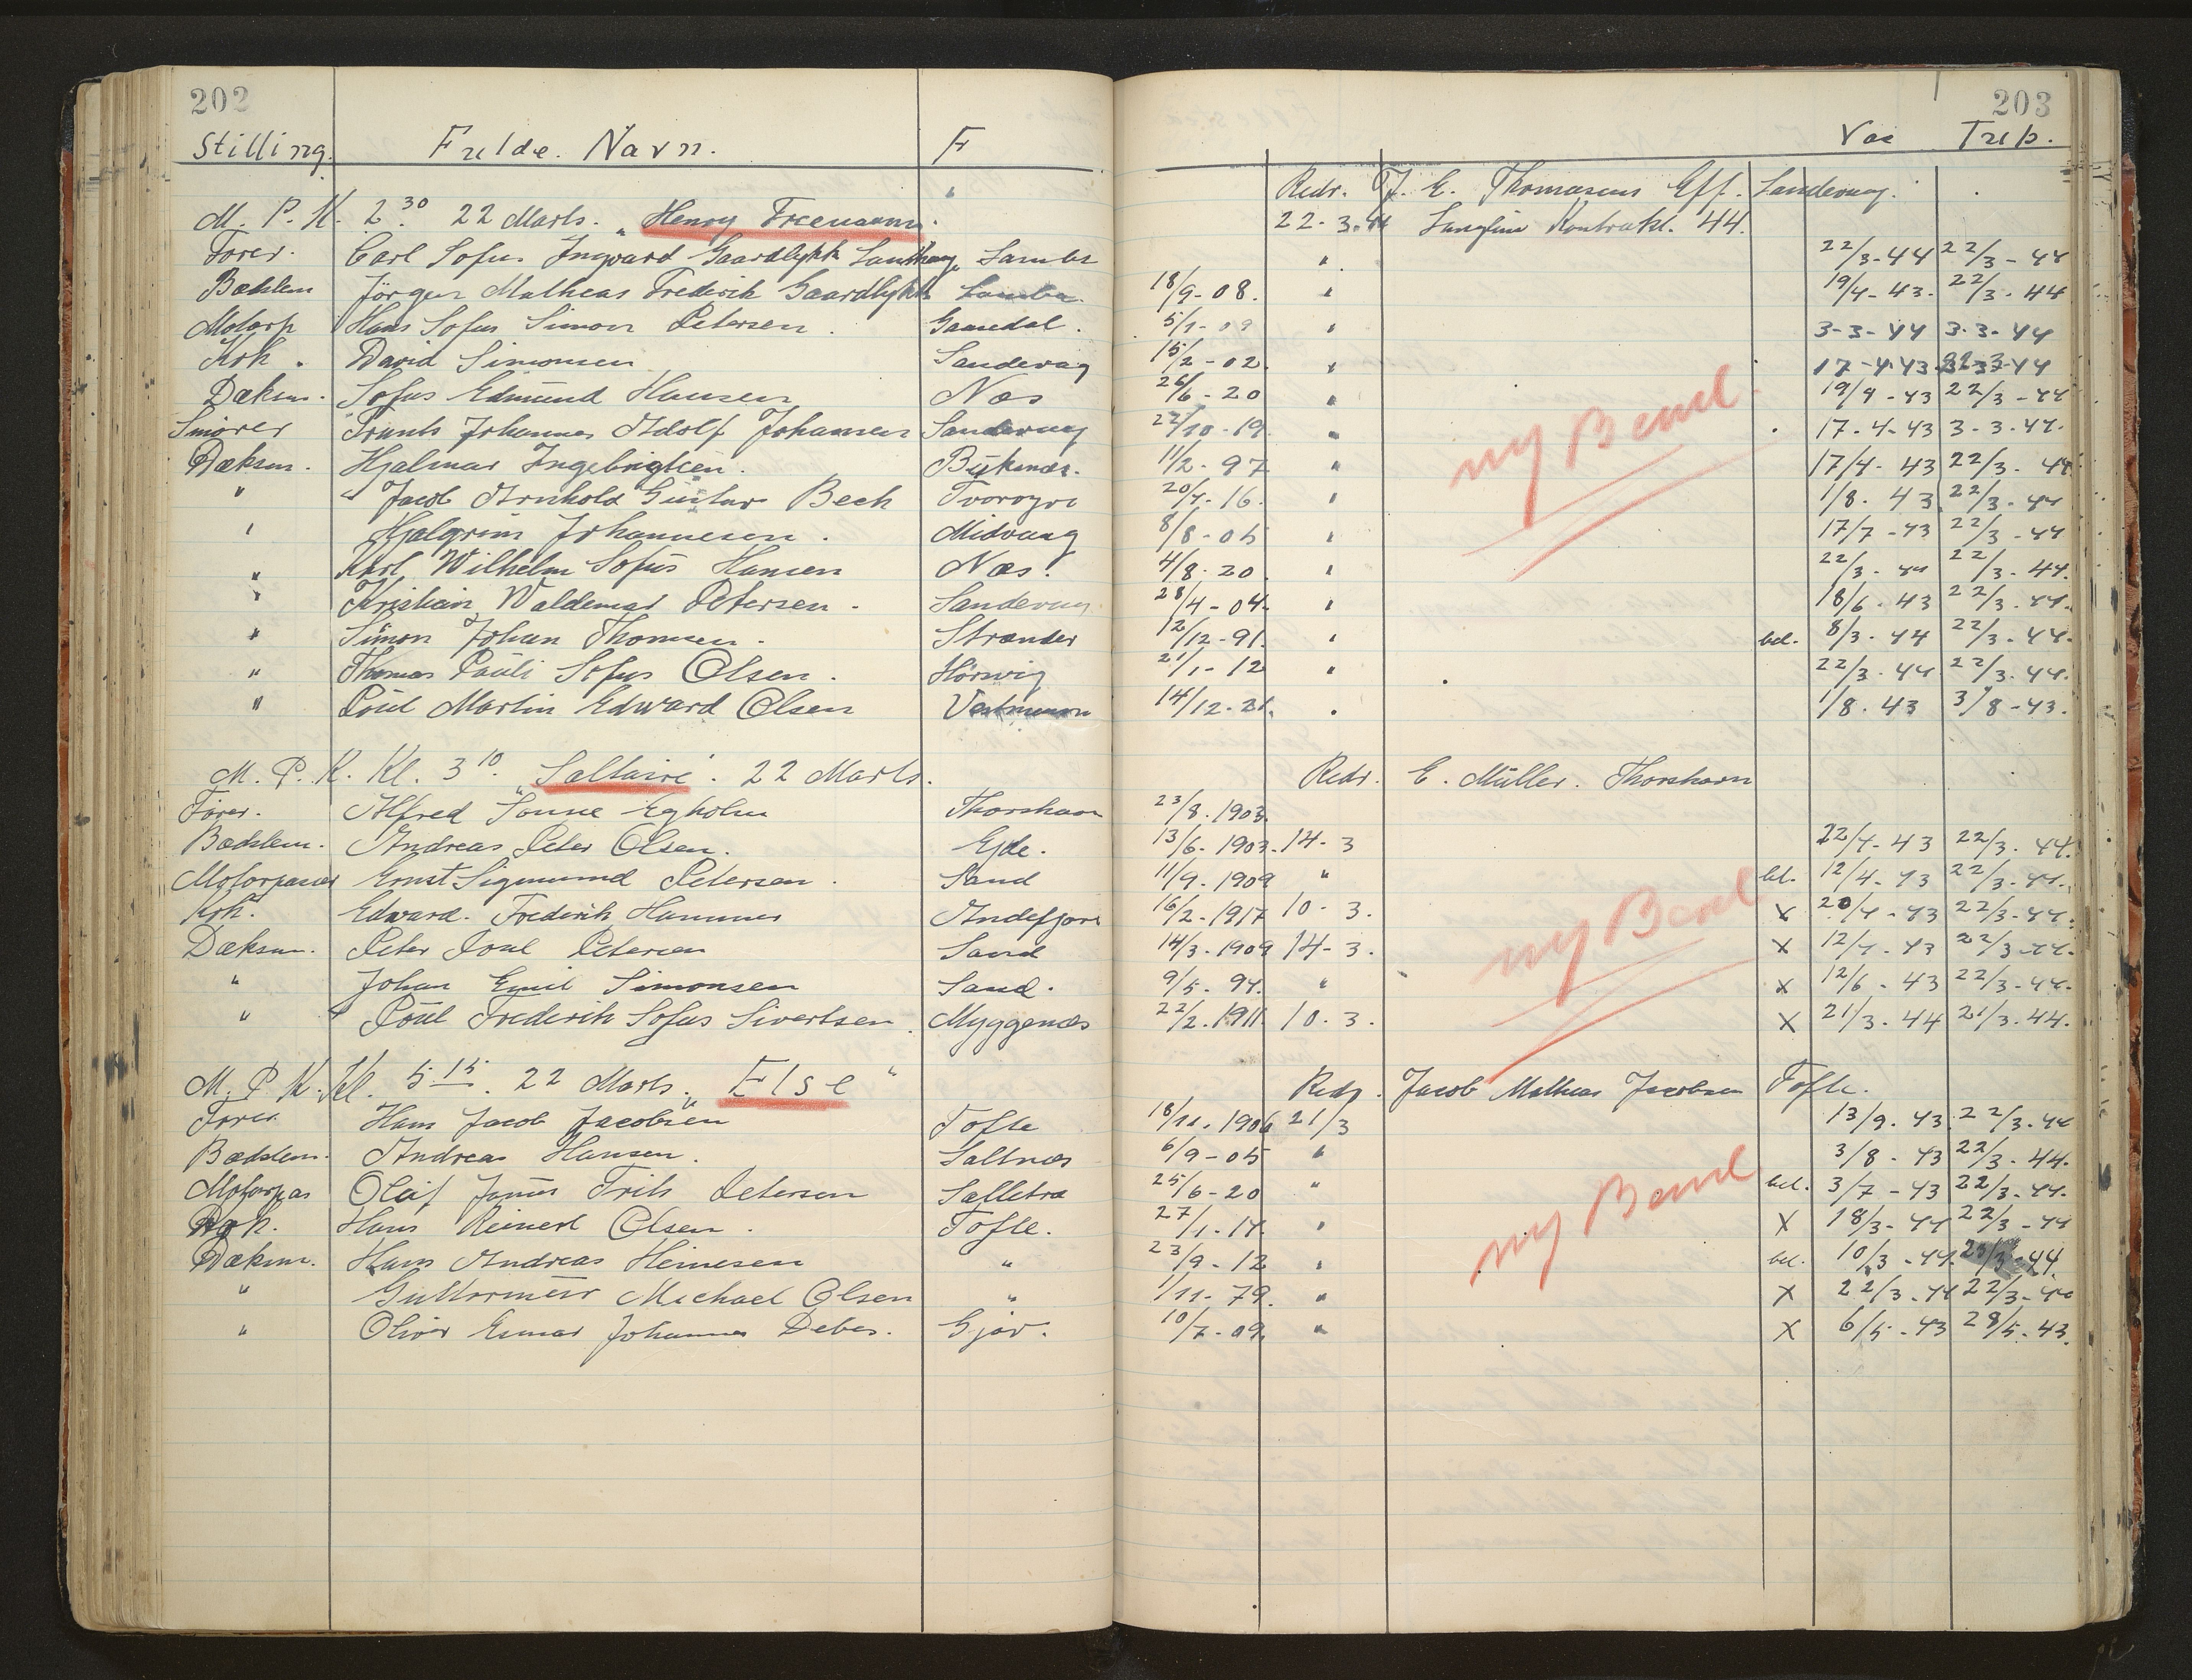 202
203
Stilling. Fulde. Navn. F Vac Trep.
Redr. J. E. Thomasens Eff. Sandevaag.
M. P. K. 2 30 22 Marts. „Henry Freemann".
22-3.44 Kontrakt. 44.
Fører. Carl Sofus Ingvard Gaardlykke Lamba " 22/3-44 22/3-44
Bedstem Jörgen Matheas Frederik Gaardlykke Lamba. 18/9-08. " 19/4-43. 22/3-44
Motorp Hans Sofus Simon Petersen. Gaasedal. 5/1-09 " 3-3-44 3-3-44
Kok. David Simonsen Sandevag 15/2-02. " 17-4-43 3-44
Dæksm. Sofus Edmund Hansen Næs 26/6-20 " 19/4-43 22/3-44
Smører Frants Johannes Adolf Johansen Sandevaag 22/10-19. " 17-4-43 3-3-44.
my Bem
Dæksm. Hjalmar Ingebrigtsen. 11/2-97 " 17/4-43 22/3-44
" Jacob Arnhold Gustav Beck Tvoroyri 20/7-16. " 1/8-43 22/3-44
" Hjalgrim Johannesen. Midvaag 8/8-05 " 17/7-43 22/3-44
" Karl Wilhelm Sofus Hansen Næs. 4/8-20 " 22/3-44 22/3-44.
" Kristian Waldemar Petersen. Sandevaag 28/4-04. " 18/6-43 22/3-44.
" Simon Johan Thomsen. Strænder 12/12-91. " bel. 8/3-44 22/3-44.
" Thomas Pauli Sofus Olsen. Hörswig 21/1-12 " 22/3-44 22/3-44.
" Poul Martin Edward Olsen 14/12-21. " 1/8-43 3/8-43.
M. P. K. Kl. 3 10. „Saltaire". 22 Marts. Redr. E. Müller. Thorshavn
Fører. Alfred Sonne Egholm Thorshavn 23/8.1903.
Bedstem. Andreas Peter Olsen. Ejde. 13/6-1903. 14-3 22/4-43 22/3-44.
Motorpasser Ernst Sigmund Petersen. Sand 11/9-1909 " bel. 12/4-43 22/3-44.
Kok. Edward. Frederik Hammer Andefjord 16/2-1917 10-3. X 20/4-43 22/3-44.
my Bem
Dæksm. Peter Poul Petersen Sand 14/3-1909 14-3. X 12/4-43 22/3-44.
" Johan Emil Simonsen Sand. 9/5-94. " X 12/6-43 22/3-44.
" Poul Frederik Sofus Sivertsen. Myggenæs 22/2.1911. 10.3. X 21/3-44 21/3.44.
M. P. K. Kl. 5 15. 22 Marts. „Else" Redr. Jacob Matheas Jacobsen Tofte.
Fører Hans Jacob Jacobsen Tofte 18/11-1906 21/3 13/9-43. 22/3-44
Bedstem. Andreas Hansen. Saltnes 6/9-05 " 3/8-43 22/3-44.
Motorpas Olaf Janus Frits Petersen 25/6-20 " bel. 3/7-43 22/3-44.
my Bem
Kok. Hans Reinert Olsen. Tofte. 27/1-14. " X 18/3-44 22/3-44
Dæksm. Hans Andreas Heinesen " 23/9-12 " bel. 10/3-44. 23/3-44
" Guttormur Michael Olsen " 1/11-79. " X 22/3-44 22/3-44
" Oliver Esmar Johannes Debes. Gjov. 10/7-09. " X 6/5-43 28/5-43.